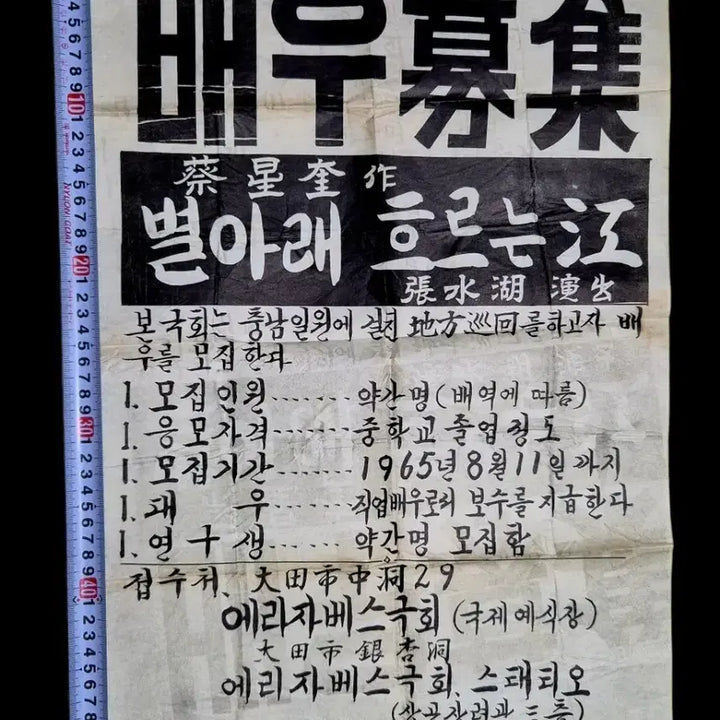 배우募集
蔡星奎 作
별아래 흐르는江
張水湖 演出
본국회는 충남일원에 실천 地方巡回를하고자 배
우를 모집한다
1. 모집인원……약간명(배역에 따름)
1. 응모자격……중학교 졸업정도
1. 모집기간……1965년 8월 11일 까지
1. 대 우……직업배우로서 보수를 지급한다
1. 연구생……약간명 모집함
접수처、大田市中洞29
에리자베스극회 (국제예식장)
大田市 銀杏洞
에리자베스극회、스태티오
(상공장려관 三층)
4 5 6 7 8 9 10 1 2 3 4 5 6 7 8 9 20 1 2 3 4 5 6 7 8 9 30 1 2 3 4 5 6 7 8 9 40 1 2 3 4 5 6 7
NYLON COAT